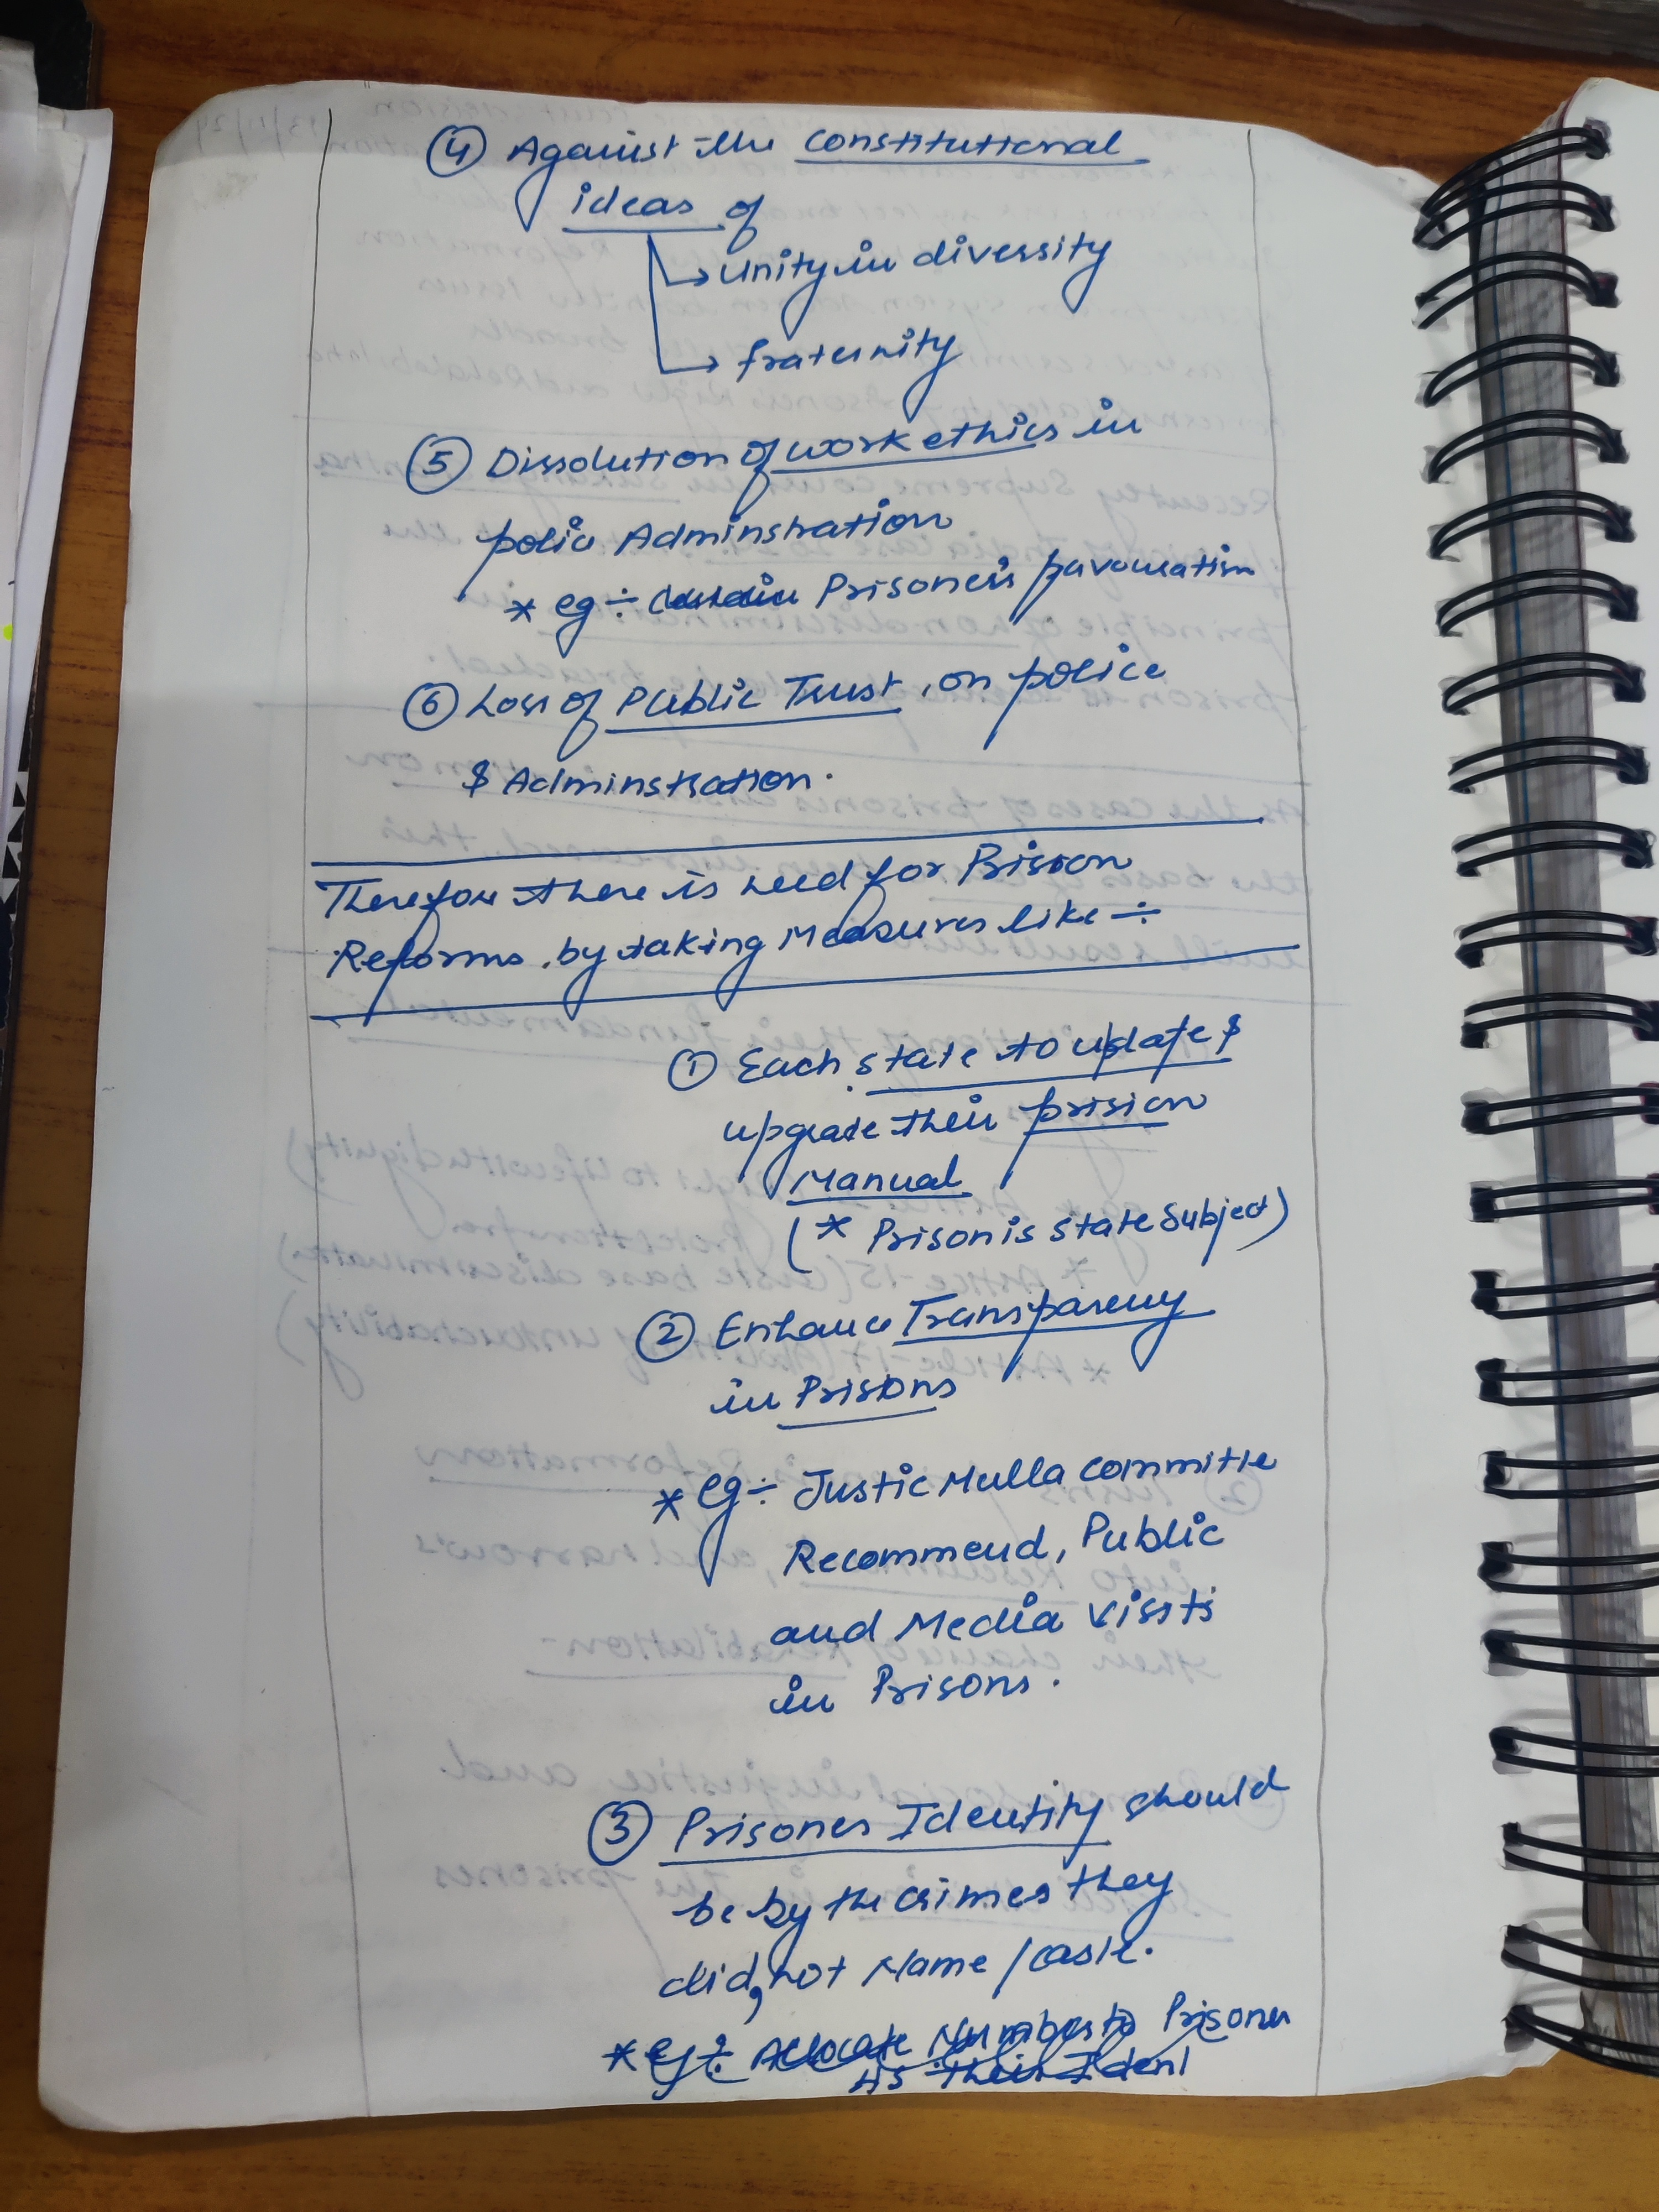 ④ Against the constitutional
ideas of
→ Unity in diversity
→ fraternity
⑤ Dissolution of work ethics in
police Adminstration
* eg ÷ Prisoner's
⑥ Loss of Public Trust, on police
$ Adminstration.
Therefore there is need for Prision
Reforms, by taking Measures like ÷
① Each state to update $
upgrade their prision
Manual
(* Prison is state subject)
② Enhance Transparency
in Prisions
* eg ÷ Justic Mulla committe
Recommend, Public
and Media visits
in Prisons.
③ Prisoner Identity should
be by the crimes they
did, not Name / caste.
* eg ÷ Allocate Numbers to Prisoner
As their Ident